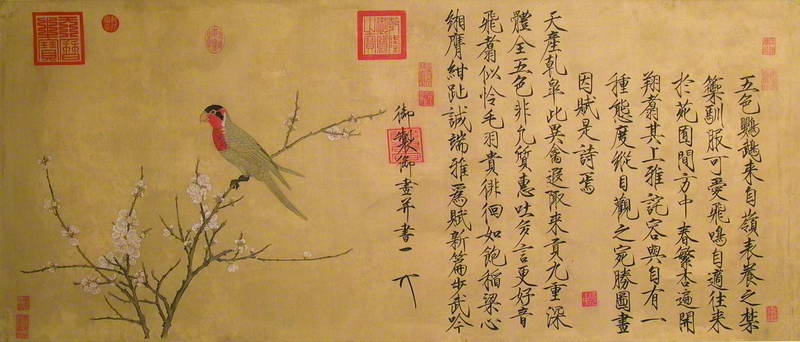 五色鸚鵡來自嶺表養之禁
籞馴服可愛飛鳴自適往來
於苑囿間方中春繁杏遍開
翔翥其上雅詫容與自有一
種態度縱目觀之宛勝圖畫
因賦是詩焉
天產乾皋此異禽遐陬來貢九重深
體全五色非凡質惠吐多言更好音
飛翥似憐毛羽貴徘徊如飽稻粱心
緗膺紺趾誠端雅爲賦新篇步武吟
御製御畫并書